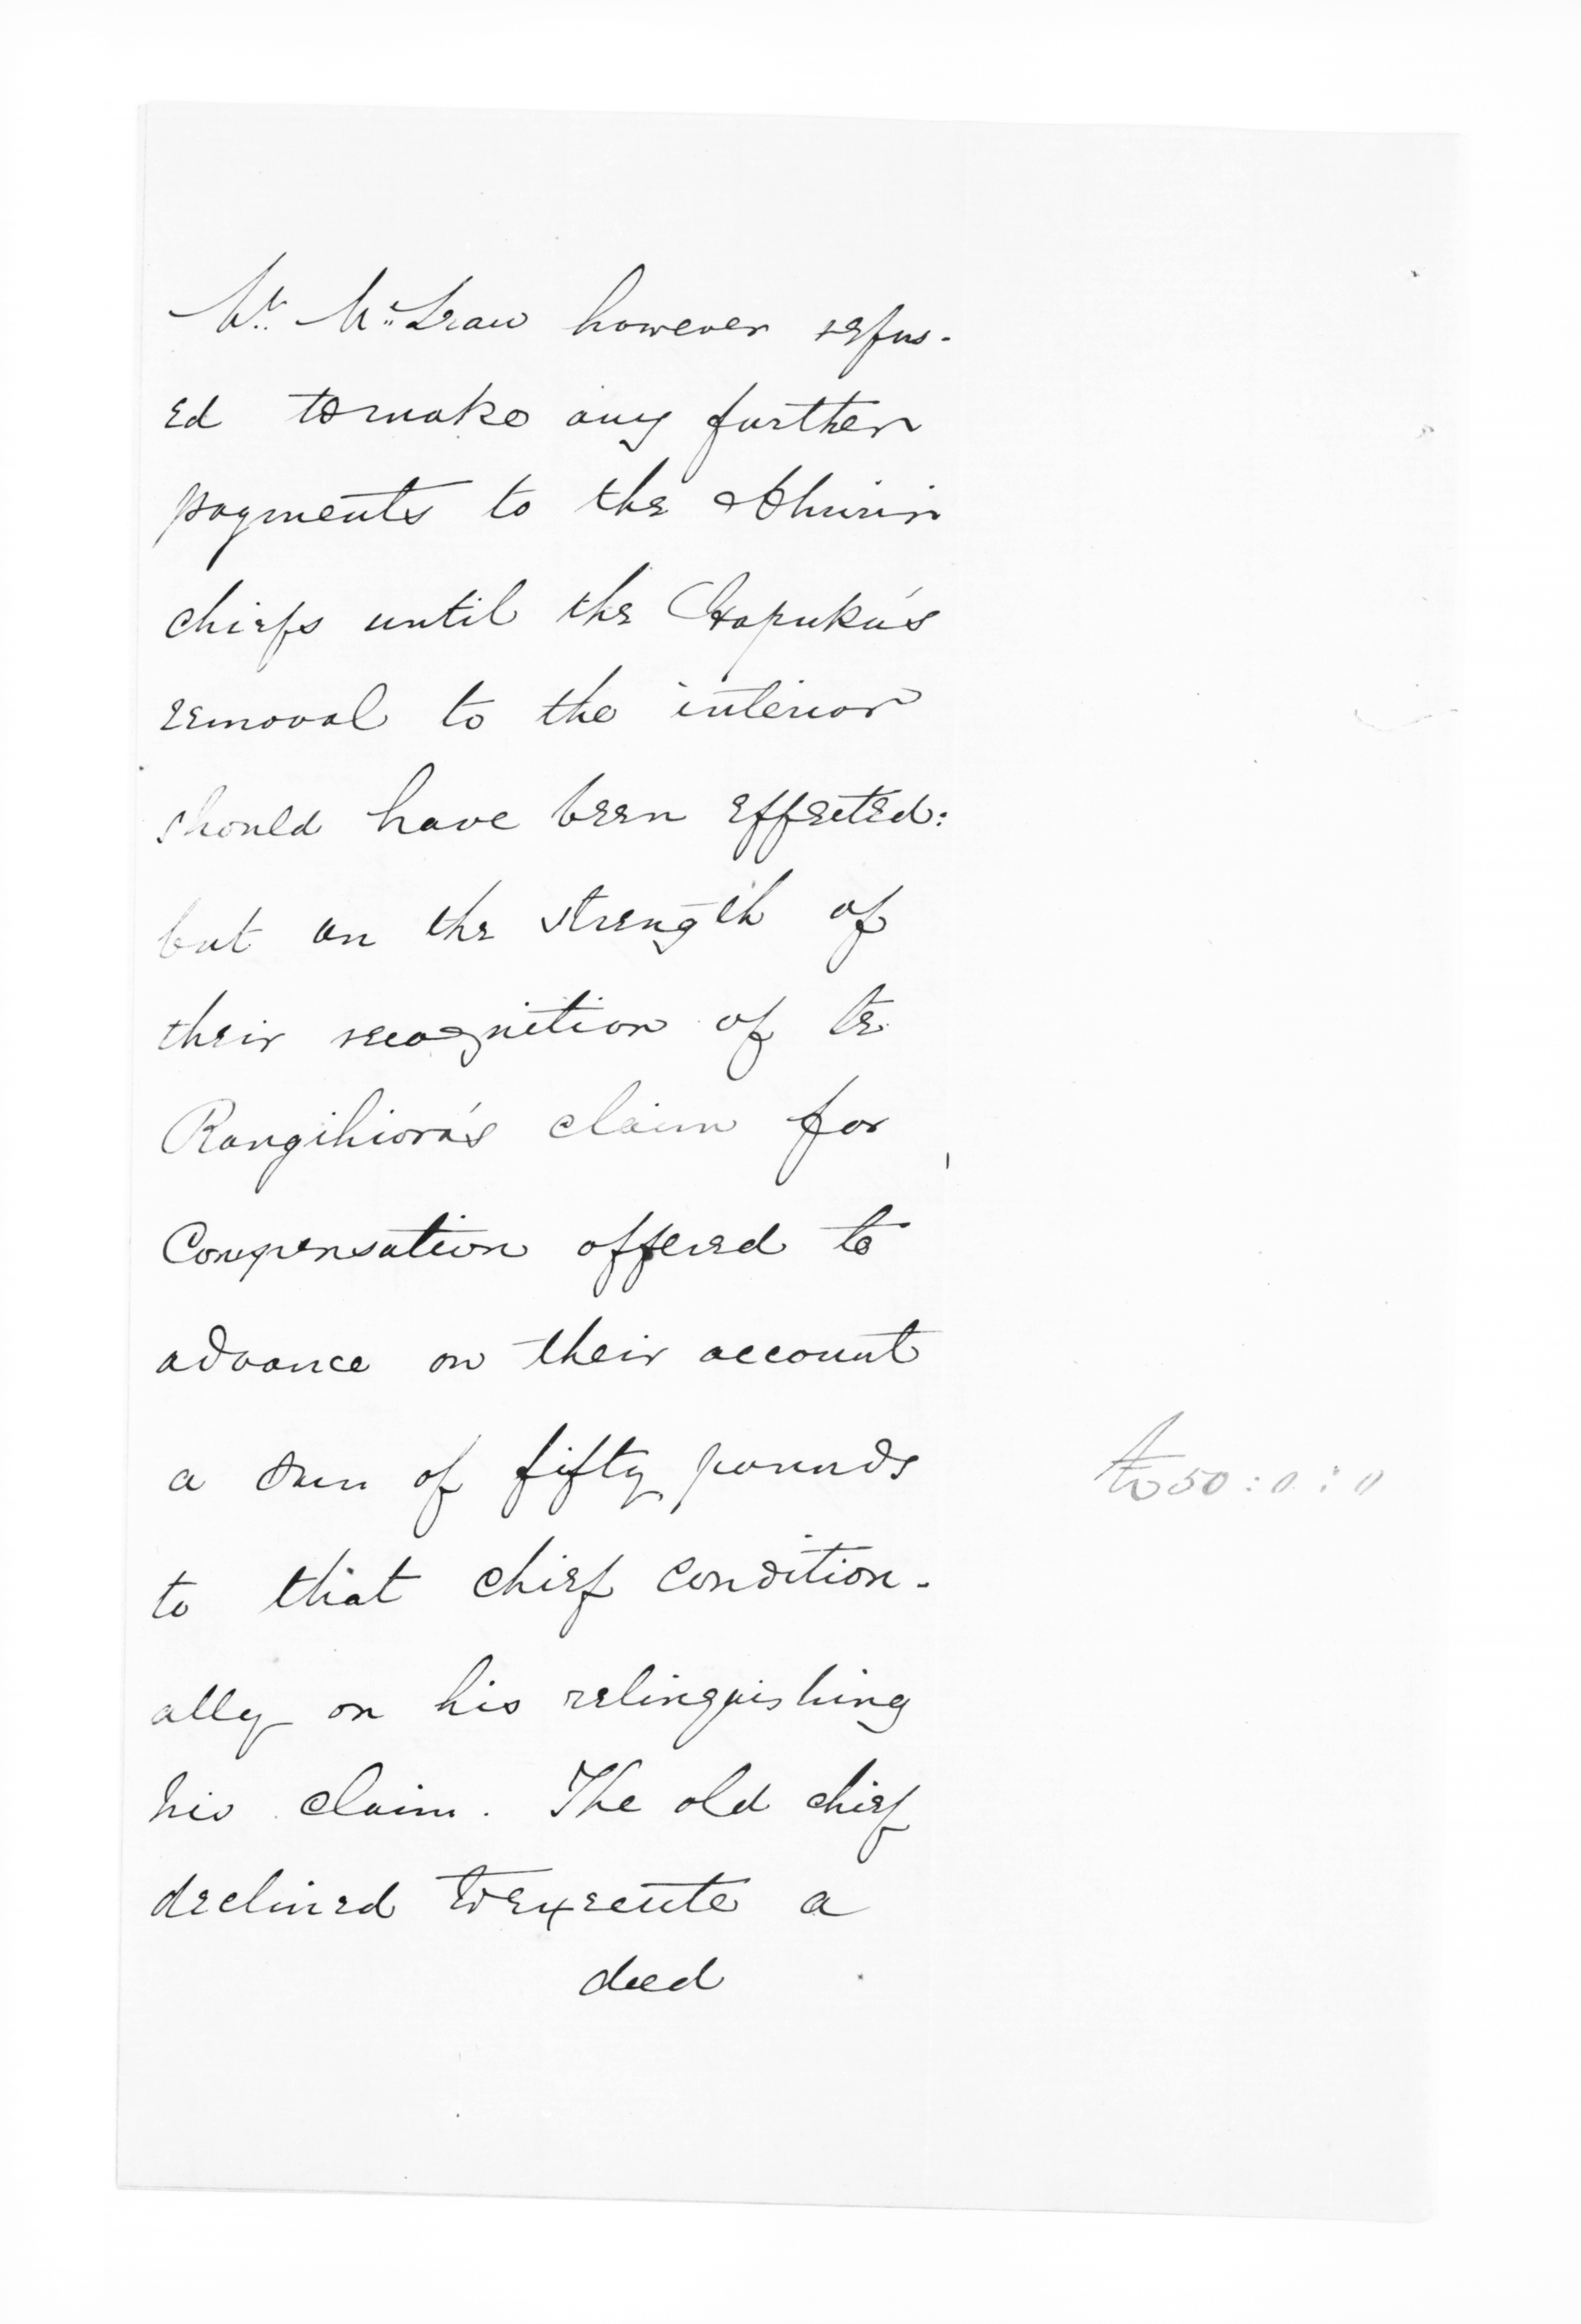 Mr. McLean however refus-
ed to make any further
payments to the Ahuriri
chiefs until the Hapuku's
removal to the interior
should have been effected:
but on the strength of
their recognition of te
Rangihiroa's claim for
Compensation offered to
advance on their account
a sum of fifty pounds
£50:0:0
to that chief condition-
ally on his relinquishing
his claim. The old chief
declined to execute a
deed